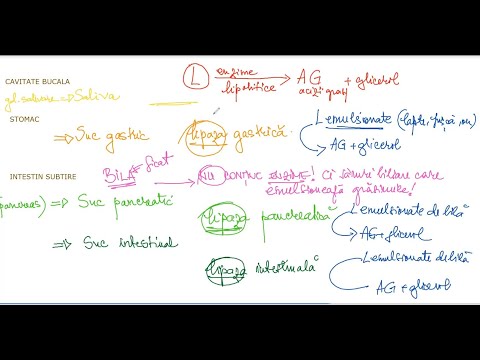 L enzime lipolitice → AG + glicerol
acizi grași
CAVITATE BUCALA
gl. salivare ⇒ Saliva
STOMAC
⇒ Suc gastric lipaza gastrică
L emulsionate (lapte, frișcă, ou)
AG + glicerol
INTESTIN SUBTIRE
BILA ficat → NU CONȚINE ENZIME! Ci săruri biliare care emulsionează grăsimile!
(pancreas) ⇒ Suc pancreatic
lipaza pancreatică
L emulsionate de bilă
AG + glicerol
⇒ Suc intestinal
lipaza intestinală
L emulsionate de bilă
AG + glicerol